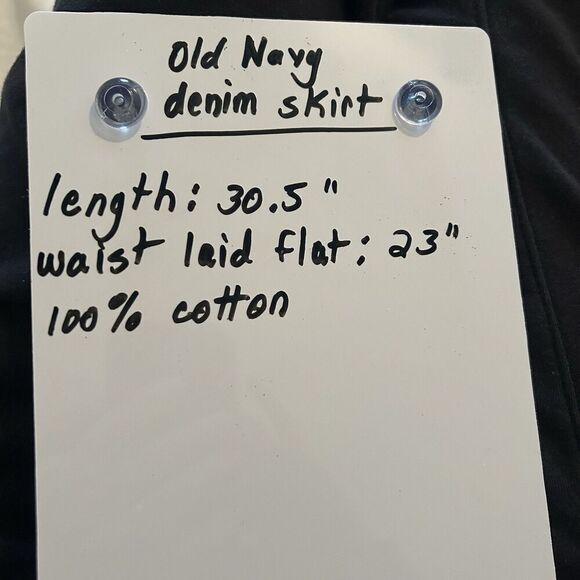 Old Navy
denim skirt
length: 30.5"
waist laid flat: 23"
100% cotton